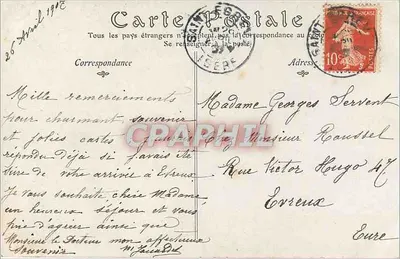 26 Avril 1907
Carte Postale
Tous les pays étrangers n'acceptent pas la correspondance
Se renseigner
SAINT-EGREVE
ISERE
10
Correspondance
Adresse
Mille remerciements
pour charmant souvenir
et jolies cartes
repondu déjà si j'avais été
sure de votre arrivée à Evreux
Je vous souhaite, chère Madame
un heureux séjour et vous
prie d'agréer ainsi que
Monsieur le Docteur mon affectueux
souvenir
Madame Georges Servent
chez Monsieur Roussel
Rue Victor Hugo 47
Evreux
Eure
CPARAMA